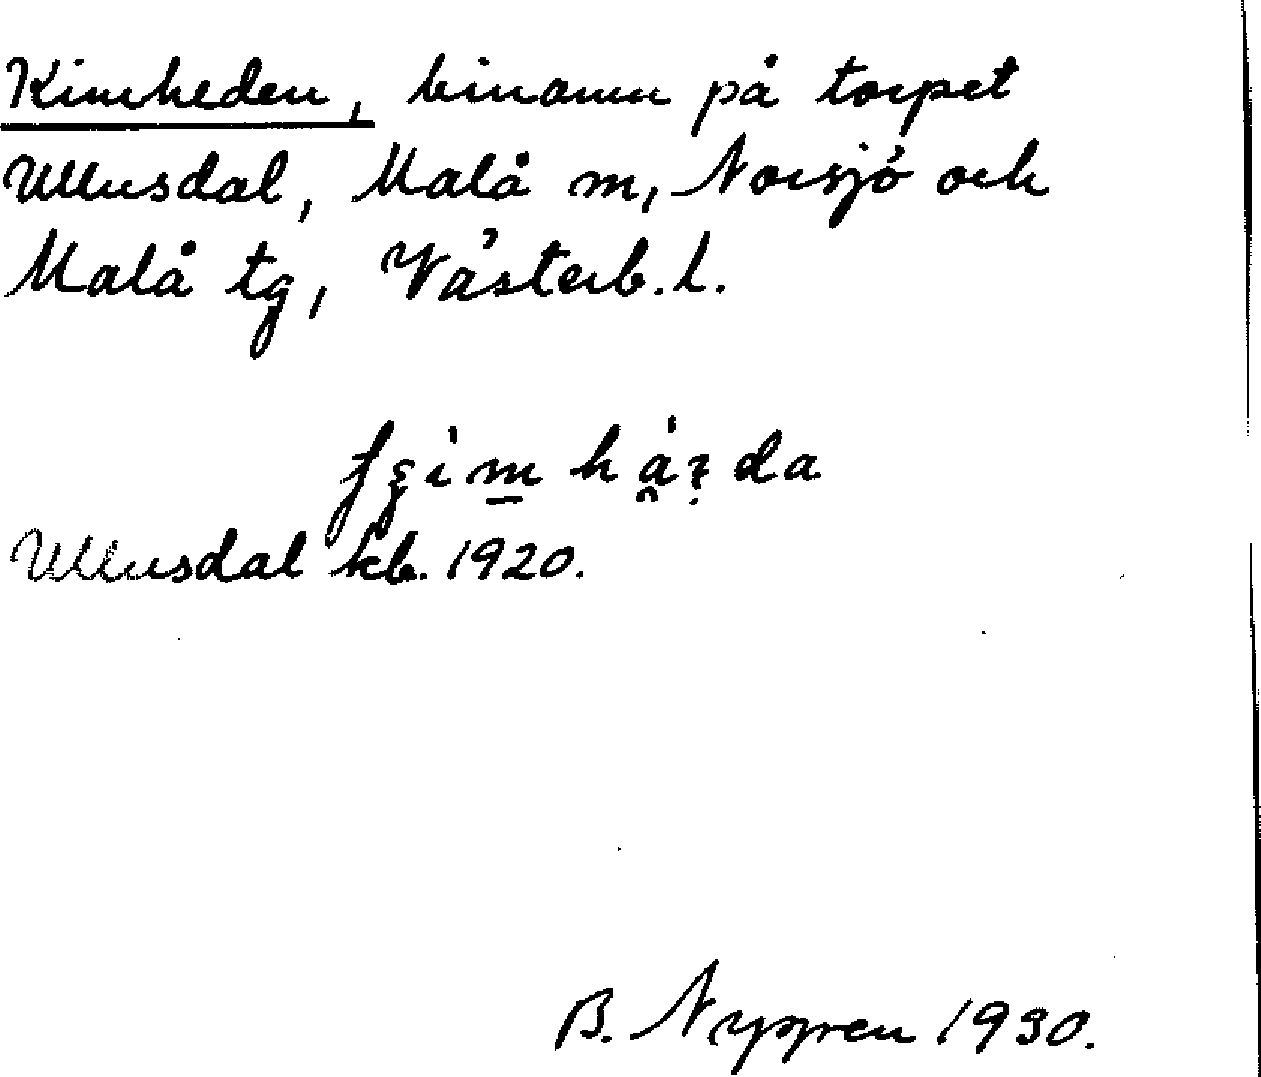 Kimheden, binamn på torpet
Ullusdal, Malå m, Norsjö och
Malå tg, Västerb. l.
Ullusdal kb. 1920.
B. Nygren 1930.